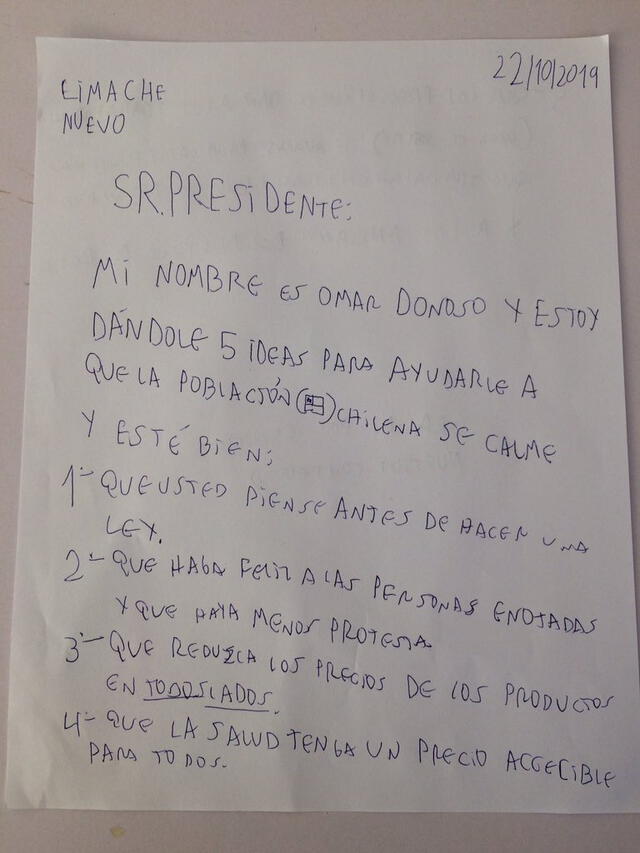 22/10/2019
LIMACHE
NUEVO
SR. PRESIDENTE:
MI NOMBRE ES OMAR DONOSO Y ESTOY
DÁNDOLE 5 IDEAS PARA AYUDARLE A
QUE LA POBLACIÓN ( ) CHILENA SE CALME
Y ESTÉ BIEN:
1- QUE USTED PIENSE ANTES DE HACER UNA
LEY.
2- QUE HAGA FELIZ A LAS PERSONAS ENOJADAS
Y QUE HAYA MENOS PROTESTA
3- QUE REDUZCA LOS PRECIOS DE LOS PRODUCTOS
EN TODOS LADOS.
4- QUE LA SALUD TENGA UN PRECIO ACCECIBLE
PARA TODOS.